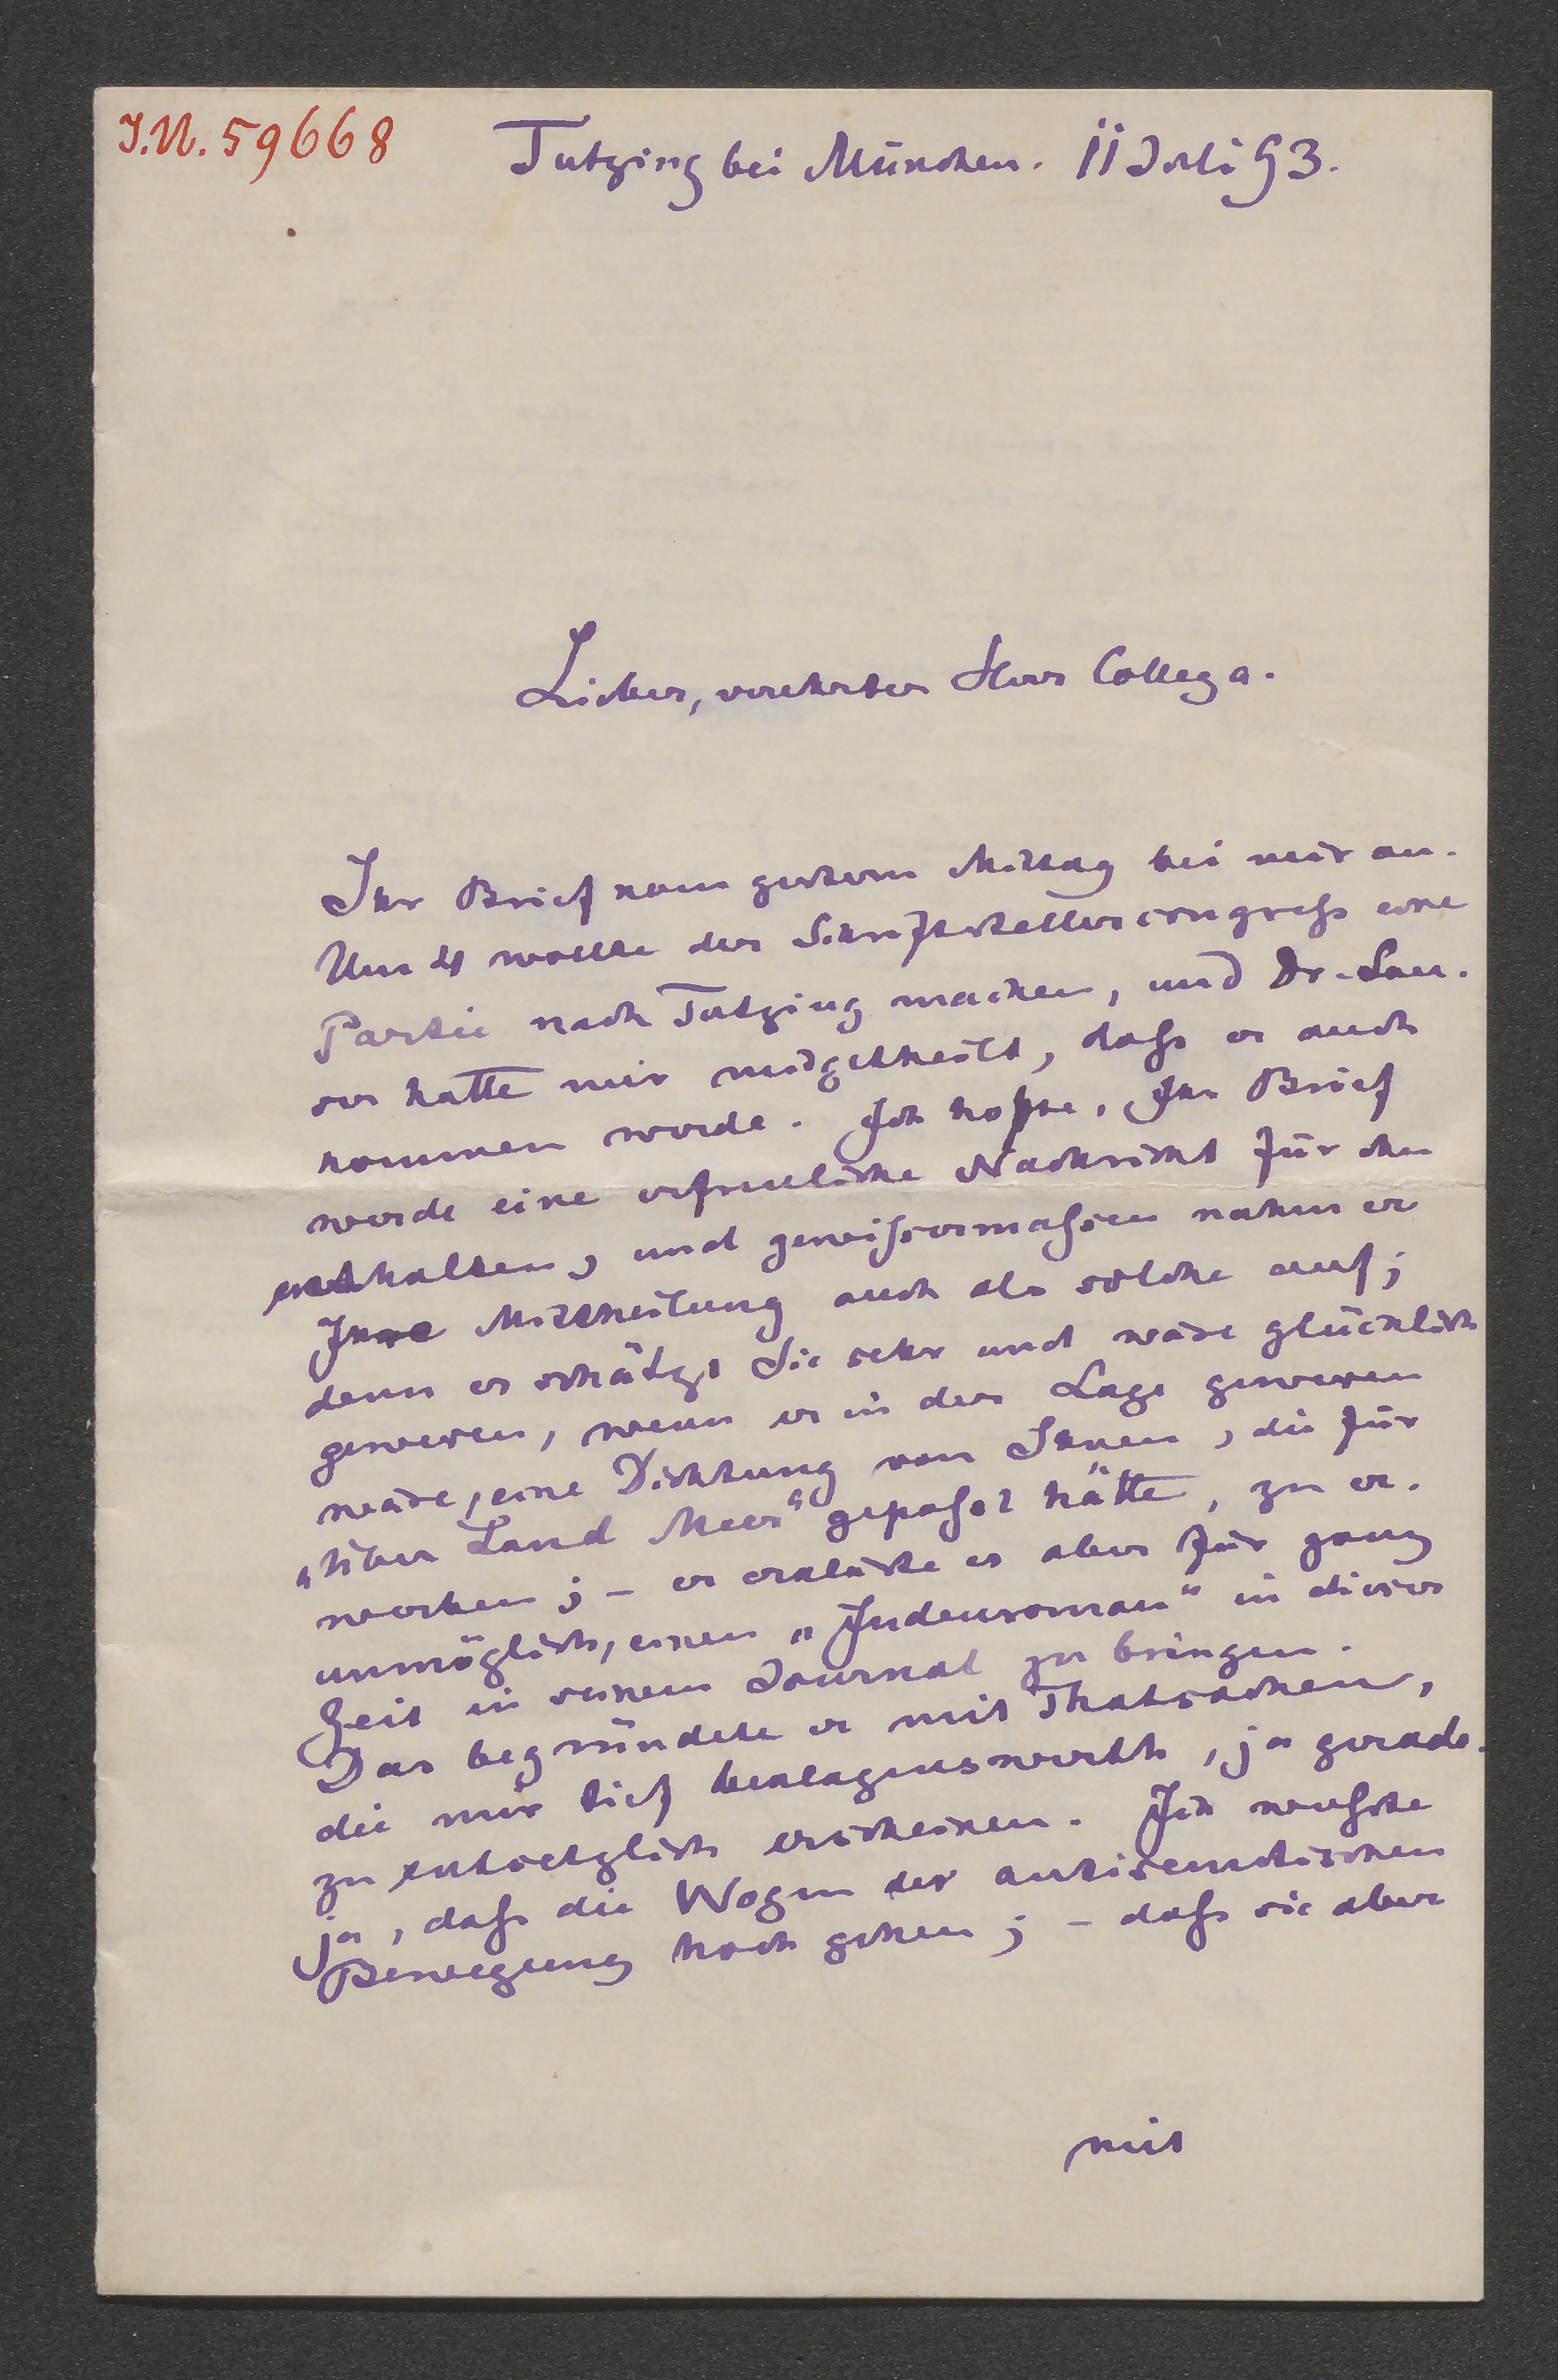 I.N. 59668
Tutzing bei München. 11 Juli 93.
Lieber, verehrter Herr College.
Ihr Brief kam gestern Mittag bei mir an.
Um 4 wollte der Schriftstellercongress eine
Partie nach Tutzing machen, und Dr. Lau-
ser hatte mir mitgetheilt, dass er auch
kommen werde. Ich hoffte, Ihr Brief
werde eine erfreuliche Nachricht für ihn
enthalten, und gewissermassen nahm er
Ihre Mittheilung auch als solche auf;
denn er schätzt Sie sehr und wäre glücklich
gewesen, wenn er in der Lage gewesen
wäre, eine Dichtung von Ihnen, die für
„Über Land Meer“ gepasst hätte, zu er-
werben; – er erklärte es aber für ganz
unmöglich, einen „Judenroman“ in dieser
Zeit in seinem Journal zu bringen.
Das begründete er mit Thatsachen,
die mir tief beklagenswerth, ja gerade-
zu entsetzlich erscheinen. Ich wusste
ja, dass die Wogen der antisemitischen
Bewegung hoch gehen; – dass sie aber
mit